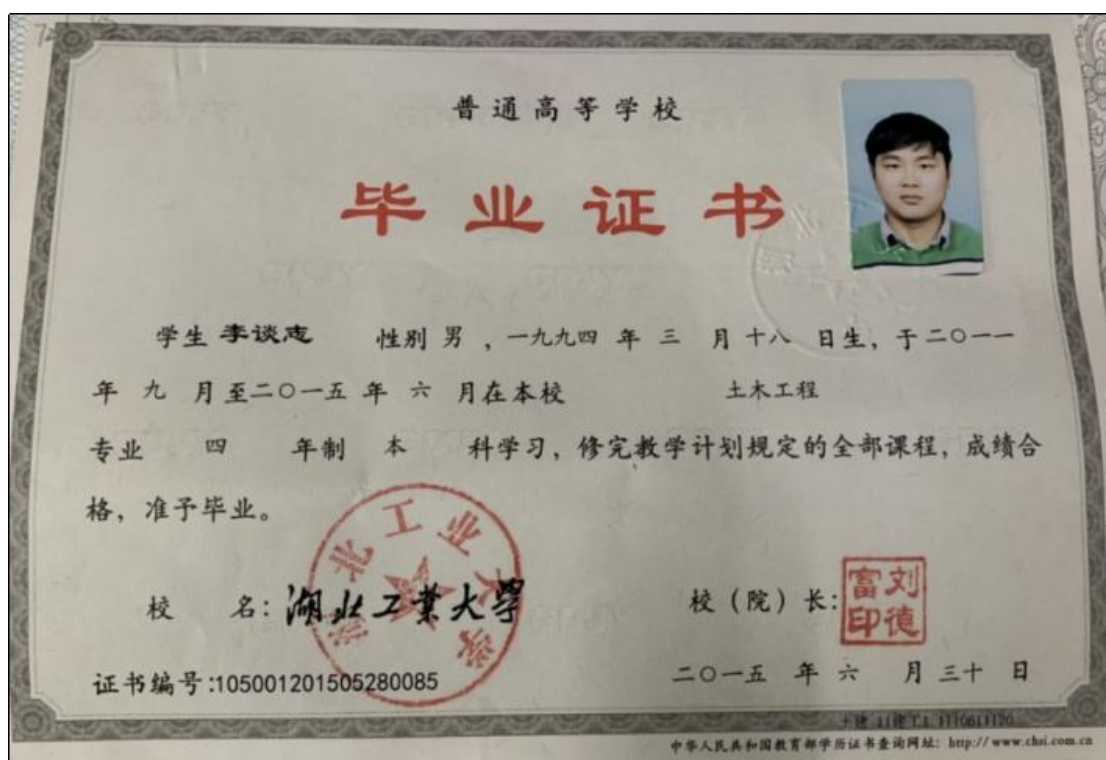 普通高等学校
毕业证书
学生 李谈志 性别 男 ，一九九四 年 三 月 十八 日生，于二〇一一
年 九 月至二〇一五 年 六 月在本校 土木工程
专业 四 年制 本 科学习，修完教学计划规定的全部课程，成绩合
格，准予毕业。
湖北工业大学
校 名：湖北工業大學
校（院）长：
刘德富印
证书编号:105001201505280085
二〇一五 年 六 月 三十 日
中华人民共和国教育部学历证书查询网址：http://www.chsi.com.cn